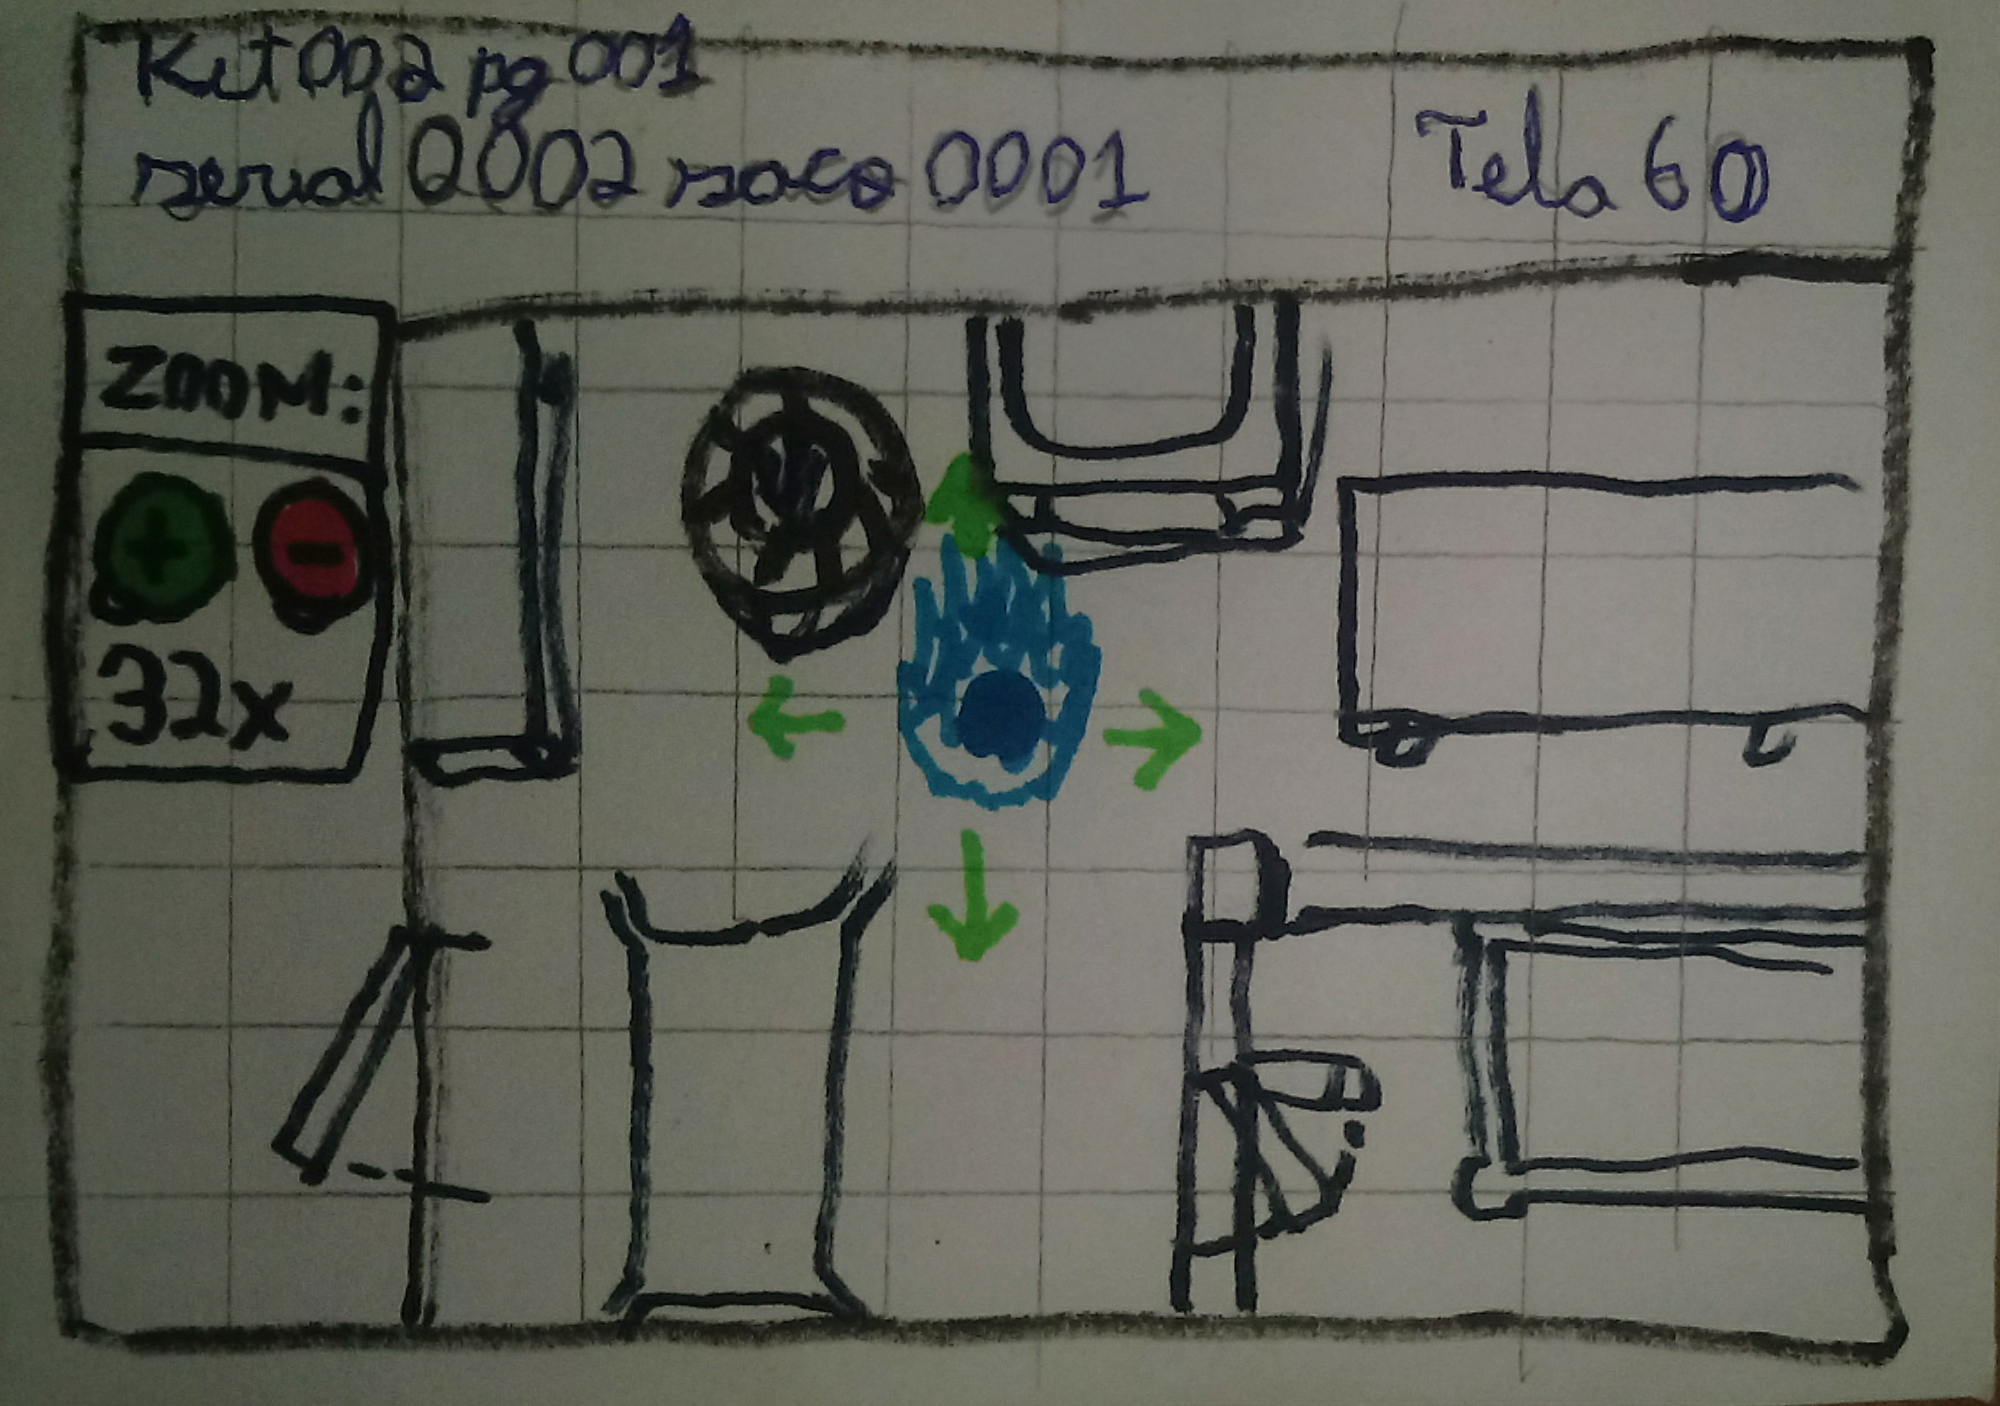 Kit002 pg001
serial 0002 saco 0001
Tela 60
ZOOM:
+ -
32x